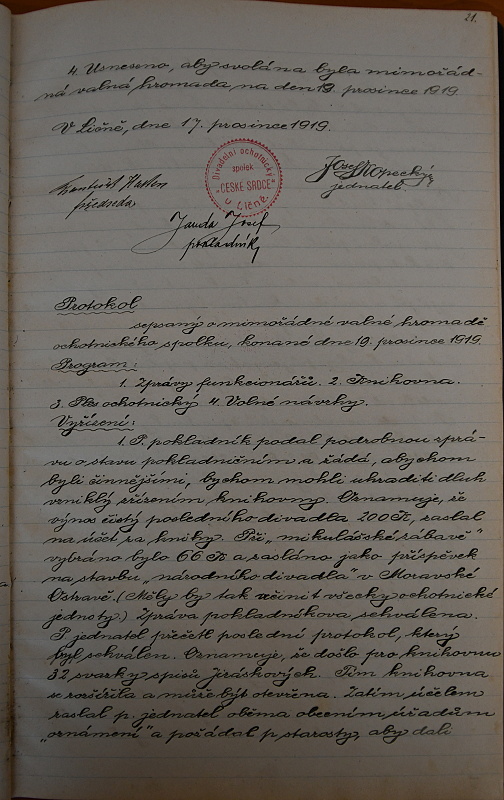 21.
4. Usneseno, aby svolána byla mimořád-
ná valná hromada na den 19. prosince 1919.
V Líšně, dne 17. prosince 1919.
Divadelní ochotnický
spolek
"ČESKÉ SRDCE"
v Líšně.
Josef Kopecký
jednatel.
předseda
Janda Josef
pokladník
Protokol
sepsaný o mimořádné valné hromadě
ochotnického spolku, konané dne 19. prosince 1919.
Program:
1. Zprávy funkcionářů. 2. Knihovna.
3. Ples ochotnický 4. Volné návrhy.
Vyřízení:
1. P. pokladník podal podrobnou zprá-
vu o stavu pokladničním a žádá, abychom
byli činnějšími, bychom mohli uhraditi dluh
vzniklý zřízením knihovny. Oznamuje, že
výnos čistý posledního divadla 200 K, zaslal
na účet za knihy. Při „mikulášské zábavě"
vybráno bylo 66 K a zasláno jako příspěvek
na stavbu „národního divadla" v Moravské
Ostravě. (Měly by tak učinit všecky ochotnické
jednoty.) Zpráva pokladníkova schválena.
P. jednatel přečetl poslední protokol, který
byl schválen. Oznamuje, že došlo pro knihovnu
32 svazky spisů Jiráskových. Tím knihovna
se rozšířila a může být otevřena. Zatím účelem
zaslal p. jednatel oběma obecním úřadům
„oznámení" a požádal p. starosty, aby dali